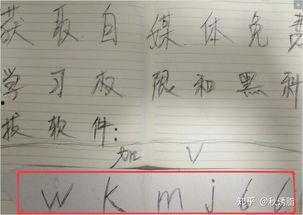 获取自媒体免费
学习权限和黑科
技软件:
加 V
wkmj66
知乎 @秋绣脂